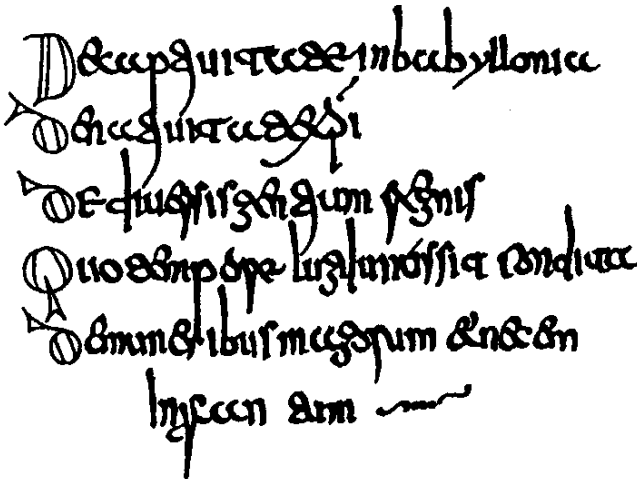 De captiuitate in babyllonia
De natiuitate xpi
De diuersis gentium regnis
Quo tempore sit condita
De muneribus magorum et necem
infantum